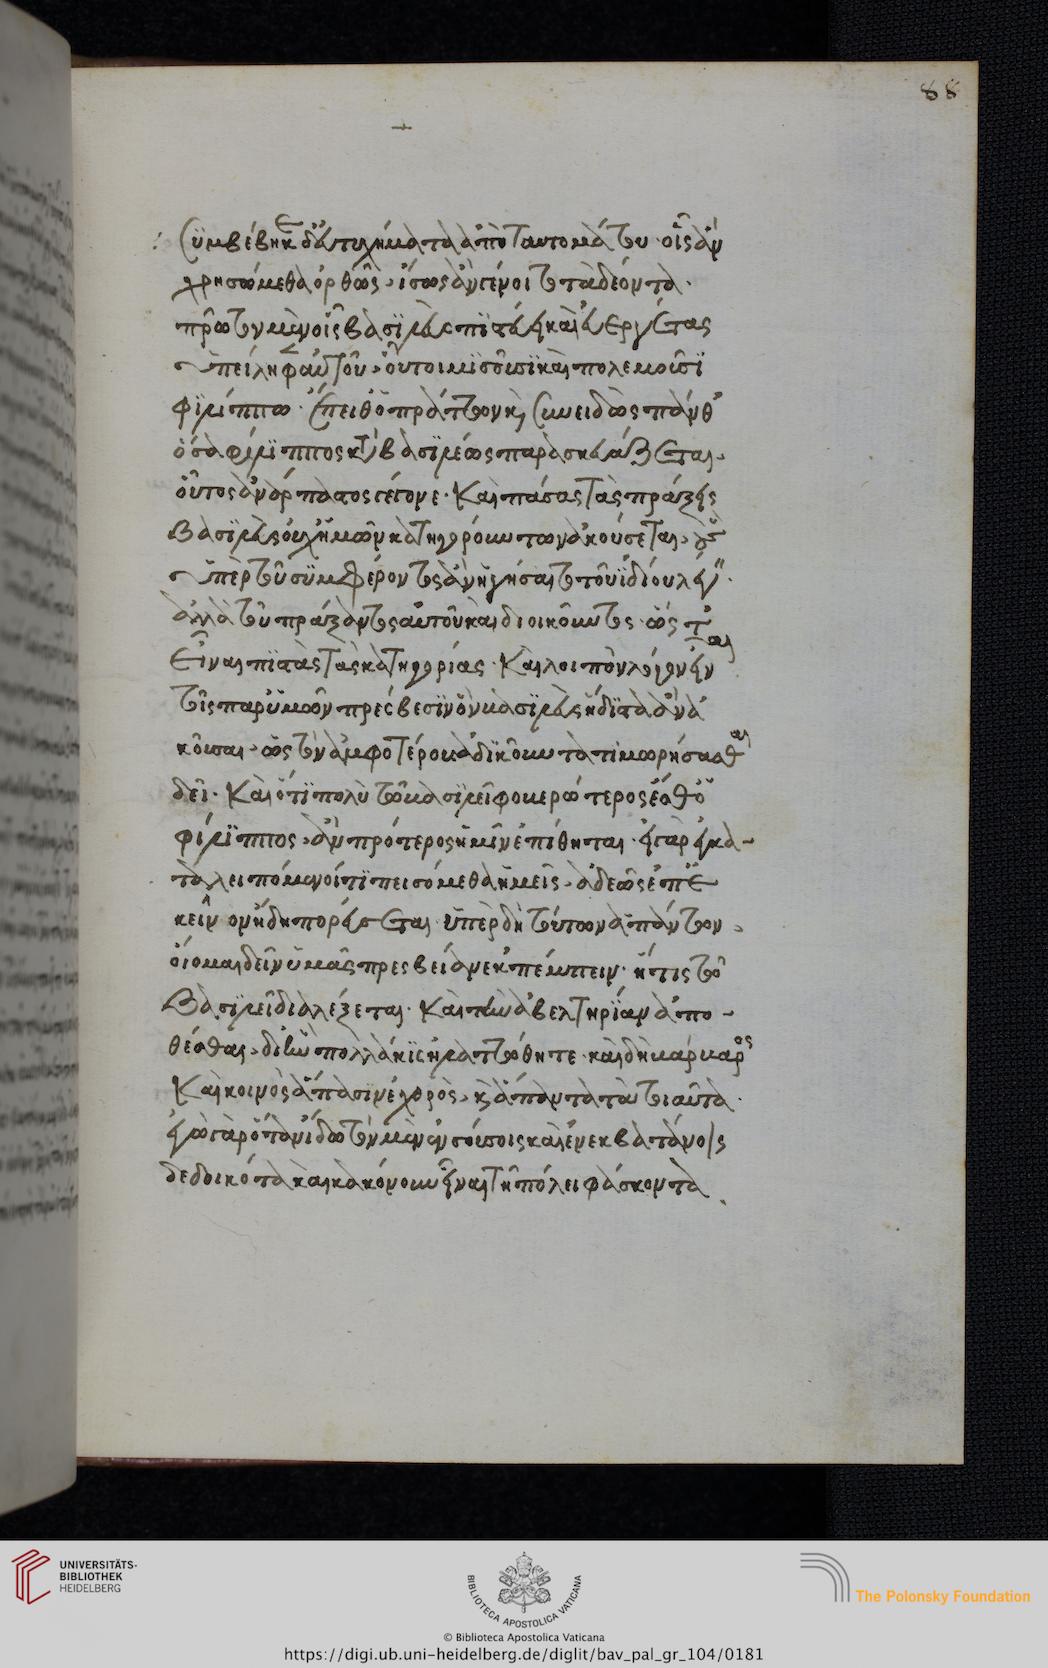 88
συμβέβηκε δ' εὐτυχήματα ἀπὸ ταυτομάτου. οἷς ἂν
χρησώμεθα ὀρθῶς, ἴσως ἂν γένοιτο τὰ δέοντα.
πρῶτον μὲν οἷς βασιλεὺς πιστεύει καὶ εὐεργέτας
ὑπείληφεν αὑτοῦ, οὗτοι μισοῦσι καὶ πολεμοῦσι
φιλίππω. ἔπειθ' ὁ πράττων κ(αὶ) συνειδὼς πάνθ'
ὅσα φίλιππος κατὰ βασιλέως παρασκευάζεται,
οὗτος ἀνάρπαστος γέγονε. καὶ πάσας τὰς πράξεις
βασιλεὺς οὐχ ἡμῶν κατηγορούντων ἀκούσεται, οὓς
ὑπὲρ τοῦ συμφέροντος ἂν ἡγήσαιτο τοῦ ἰδίου λέγειν.
ἀλλὰ τοῦ πράξαντος αὐτοῦ καὶ διοικοῦντος. ὥστ'
εἶναι πιστὰς τὰς κατηγορίας. καὶ λοιπὸν λόγον εἶναι
τοῖς παρ' ὑμῶν πρέσβεσιν ὃν βασιλεὺς ἥδιστα ἂν ἀ
κούσαι, ὡς τὸν ἀμφοτέρους ἀδικοῦντα τιμωρήσασθαι
δεῖ. καὶ ὅτι πολὺ τῶ βασιλεῖ φοβερώτερος ἔσθ' ὁ
φίλιππος, ἂν πρότερος ἡμῖν ἐπίθηται. εἰ γὰρ ἐγκα-
ταλειπόμενοί τι πεισόμεθα ἡμεῖς, ἀδεῶς ἐπ' ἐ
κεῖνον ἤδη πορεύσεται. ὑπὲρ δὴ τούτων ἁπάντων,
οἴομαι δεῖν ὑμᾶς πρεσβείαν ἐκπέμπειν. ἥτις τῶ
βασιλεῖ διαλέξεται. καὶ τὴν ἀβελτηρίαν ἀπο-
θέσθαι, δι' ἣν πολλάκις ἠλαττώθητε. καὶ δὴ βάρβαρος
καὶ κοινὸς ἅπασιν ἐχθρὸς, κ(αὶ) ἅπαντα τὰ τοιαῦτα.
ἐγὼ γὰρ ὅταν ἴδω τὸν μὲν ἐν σούσοις καὶ ἐν ἐκβατάνοις
δεδοικότα καὶ κακόνουν εἶναι τῆ πόλει φάσκοντα
UNIVERSITÄTS-
BIBLIOTHEK
HEIDELBERG
BIBLIOTECA APOSTOLICA VATICANA
The Polonsky Foundation
© Biblioteca Apostolica Vaticana
https://digi.ub.uni-heidelberg.de/diglit/bav_pal_gr_104/0181